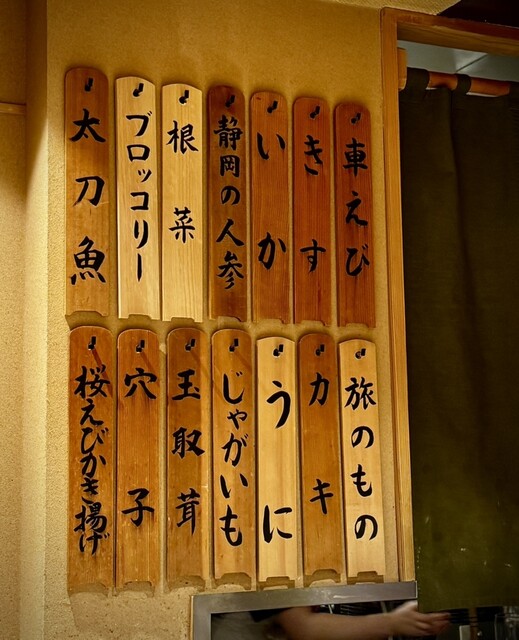 車えび
きす
いか
静岡の人参
根菜
ブロッコリー
太刀魚
旅のもの
カキ
うに
じゃがいも
玉取茸
穴子
桜えびかき揚げ